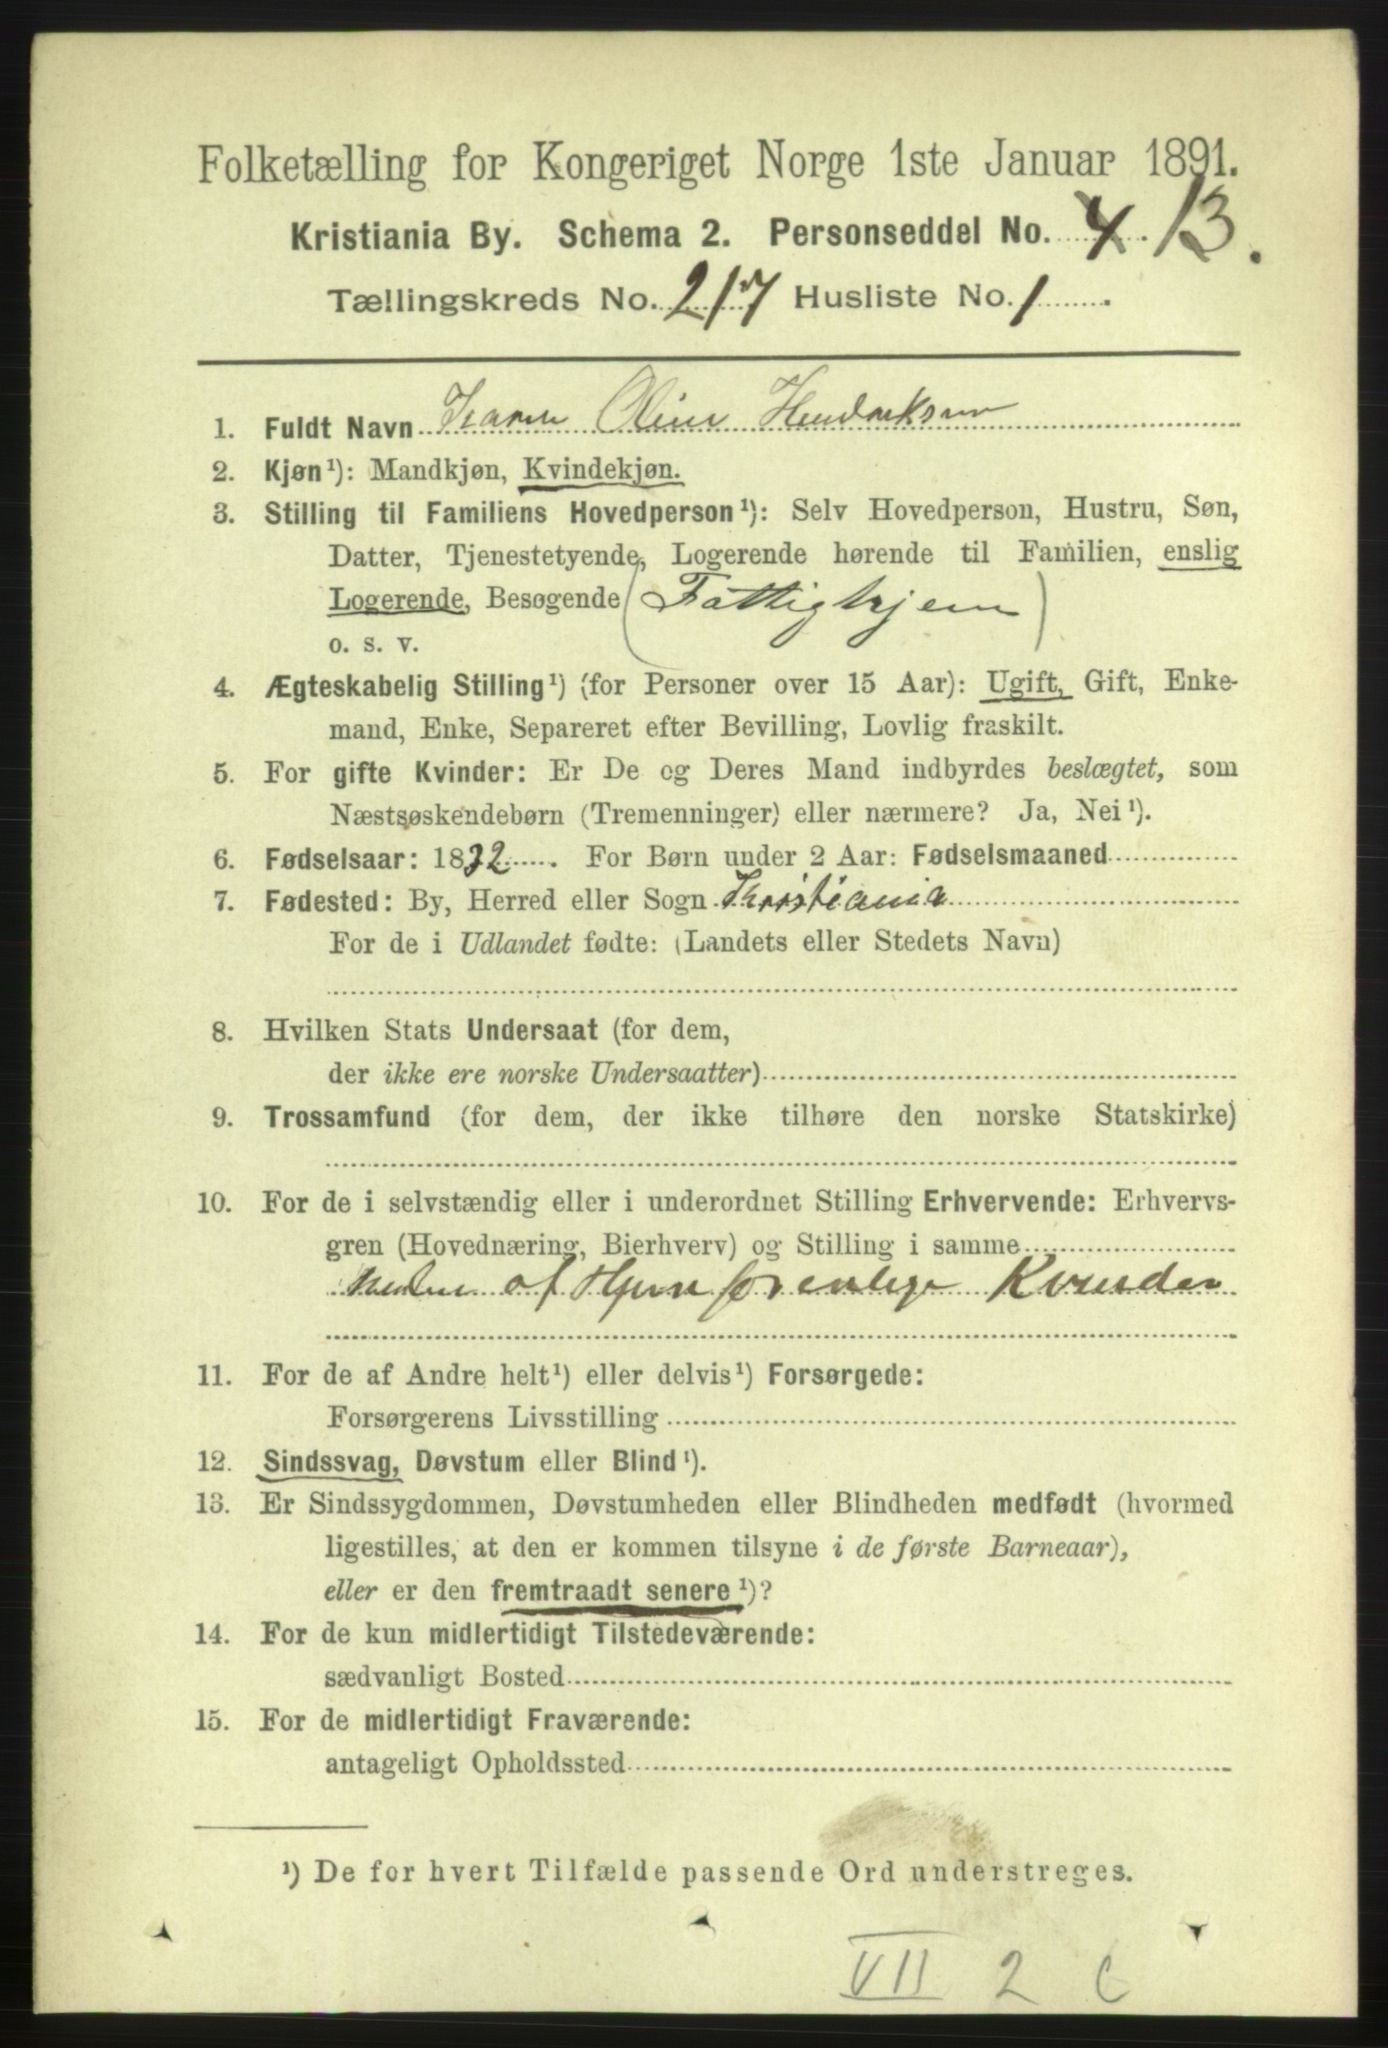 Folketælling for Kongeriget Norge 1ste Januar 1891.
Kristiania By. Schema 2. Personseddel No. 4. 13.
Tællingskreds No. 217 Husliste No. 1.
1. Fuldt Navn Karen Oline Hendriksen
2. Kjøn¹): Mandkjøn, Kvindekjøn.
3. Stilling til Familiens Hovedperson¹): Selv Hovedperson, Hustru, Søn,
Datter, Tjenestetyende, Logerende hørende til Familien, enslig
Logerende, Besøgende (Fattighjem)
o. s. v.
4. Ægteskabelig Stilling¹) (for Personer over 15 Aar): Ugift, Gift, Enke-
mand, Enke, Separeret efter Bevilling, Lovlig fraskilt.
5. For gifte Kvinder: Er De og Deres Mand indbyrdes beslægtet, som
Næstsøskendebørn (Tremenninger) eller nærmere? Ja, Nei¹).
6. Fødselsaar: 1832. For Børn under 2 Aar: Fødselsmaaned
7. Fødested: By, Herred eller Sogn Kristiania
For de i Udlandet fødte: (Landets eller Stedets Navn)
8. Hvilken Stats Undersaat (for dem,
der ikke ere norske Undersaatter)
9. Trossamfund (for dem, der ikke tilhøre den norske Statskirke)
10. For de i selvstændig eller i underordnet Stilling Erhvervende: Erhvervs-
gren (Hovednæring, Bierhverv) og Stilling i samme
af Hjem for enlige Kvinder
11. For de af Andre helt¹) eller delvis¹) Forsørgede:
Forsørgerens Livsstilling
12. Sindssvag, Døvstum eller Blind¹).
13. Er Sindssygdommen, Døvstumheden eller Blindheden medfødt (hvormed
ligestilles, at den er kommen tilsyne i de første Barneaar),
eller er den fremtraadt senere¹)?
14. For de kun midlertidigt Tilstedeværende:
sædvanligt Bosted
15. For de midlertidigt Fraværende:
antageligt Opholdssted
¹) De for hvert Tilfælde passende Ord understreges.
VII 2 C